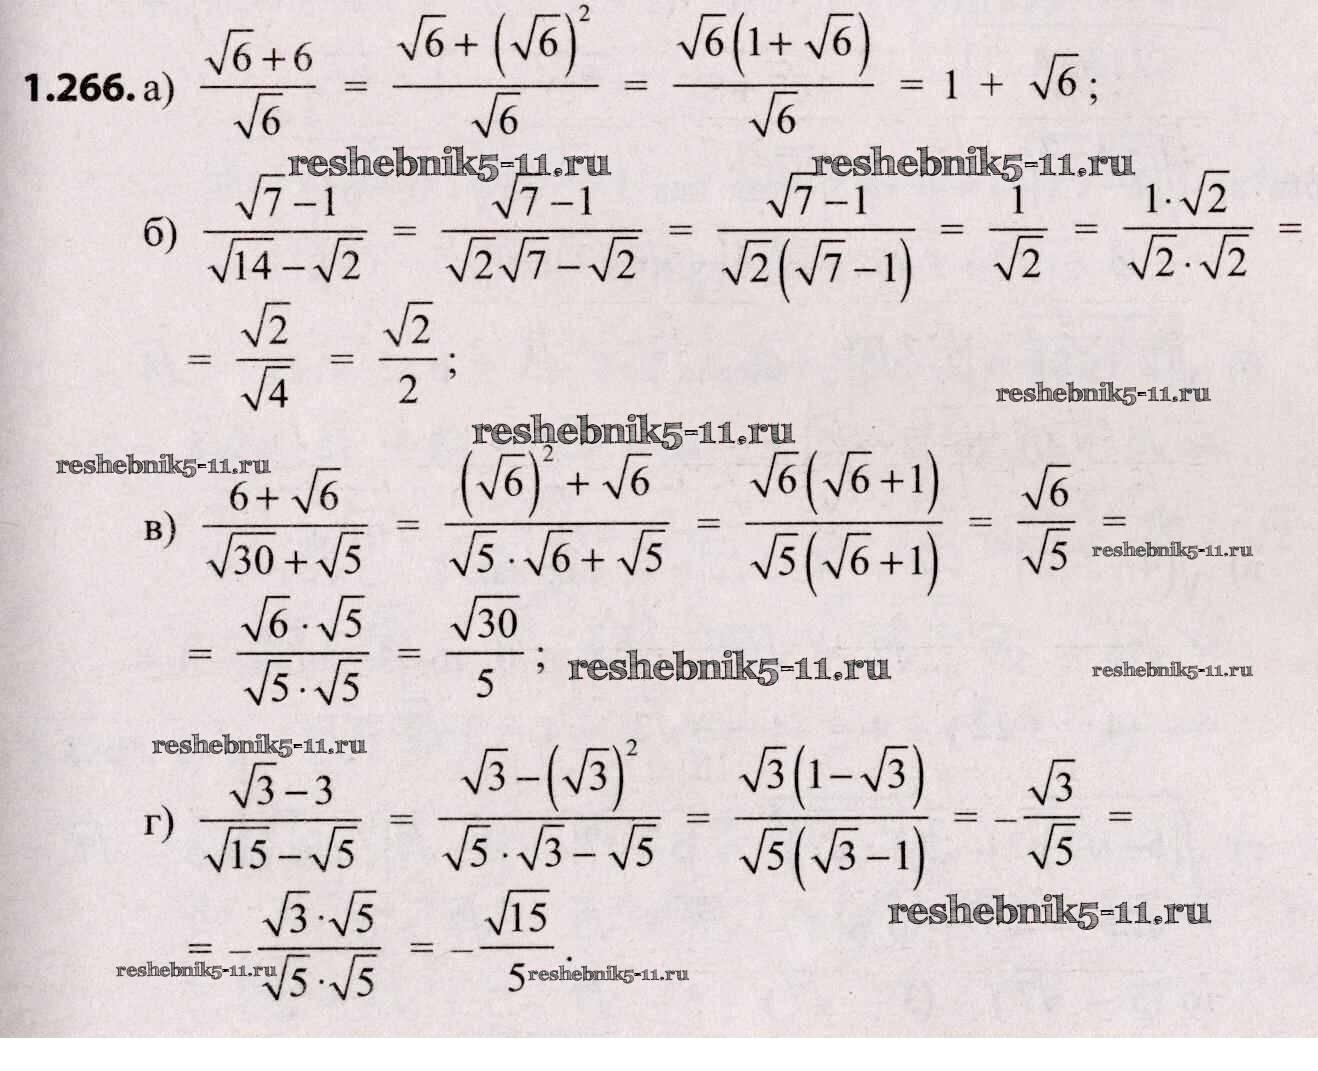 1.266. а) (√6 + 6)/√6 = (√6 + (√6)²)/√6 = √6(1 + √6)/√6 = 1 + √6;
reshebnik5-11.ru reshebnik5-11.ru
б) (√7 − 1)/(√14 − √2) = (√7 − 1)/(√2√7 − √2) = (√7 − 1)/(√2(√7 − 1)) = 1/√2 = (1·√2)/(√2·√2) =
= √2/√4 = √2/2;
reshebnik5-11.ru
reshebnik5-11.ru
reshebnik5-11.ru
в) (6 + √6)/(√30 + √5) = ((√6)² + √6)/(√5·√6 + √5) = √6(√6 + 1)/(√5(√6 + 1)) = √6/√5 =
reshebnik5-11.ru
= (√6·√5)/(√5·√5) = √30/5;
reshebnik5-11.ru reshebnik5-11.ru
reshebnik5-11.ru
г) (√3 − 3)/(√15 − √5) = (√3 − (√3)²)/(√5·√3 − √5) = √3(1 − √3)/(√5(√3 − 1)) = −√3/√5 =
reshebnik5-11.ru
= −(√3·√5)/(√5·√5) = −√15/5.
reshebnik5-11.ru reshebnik5-11.ru